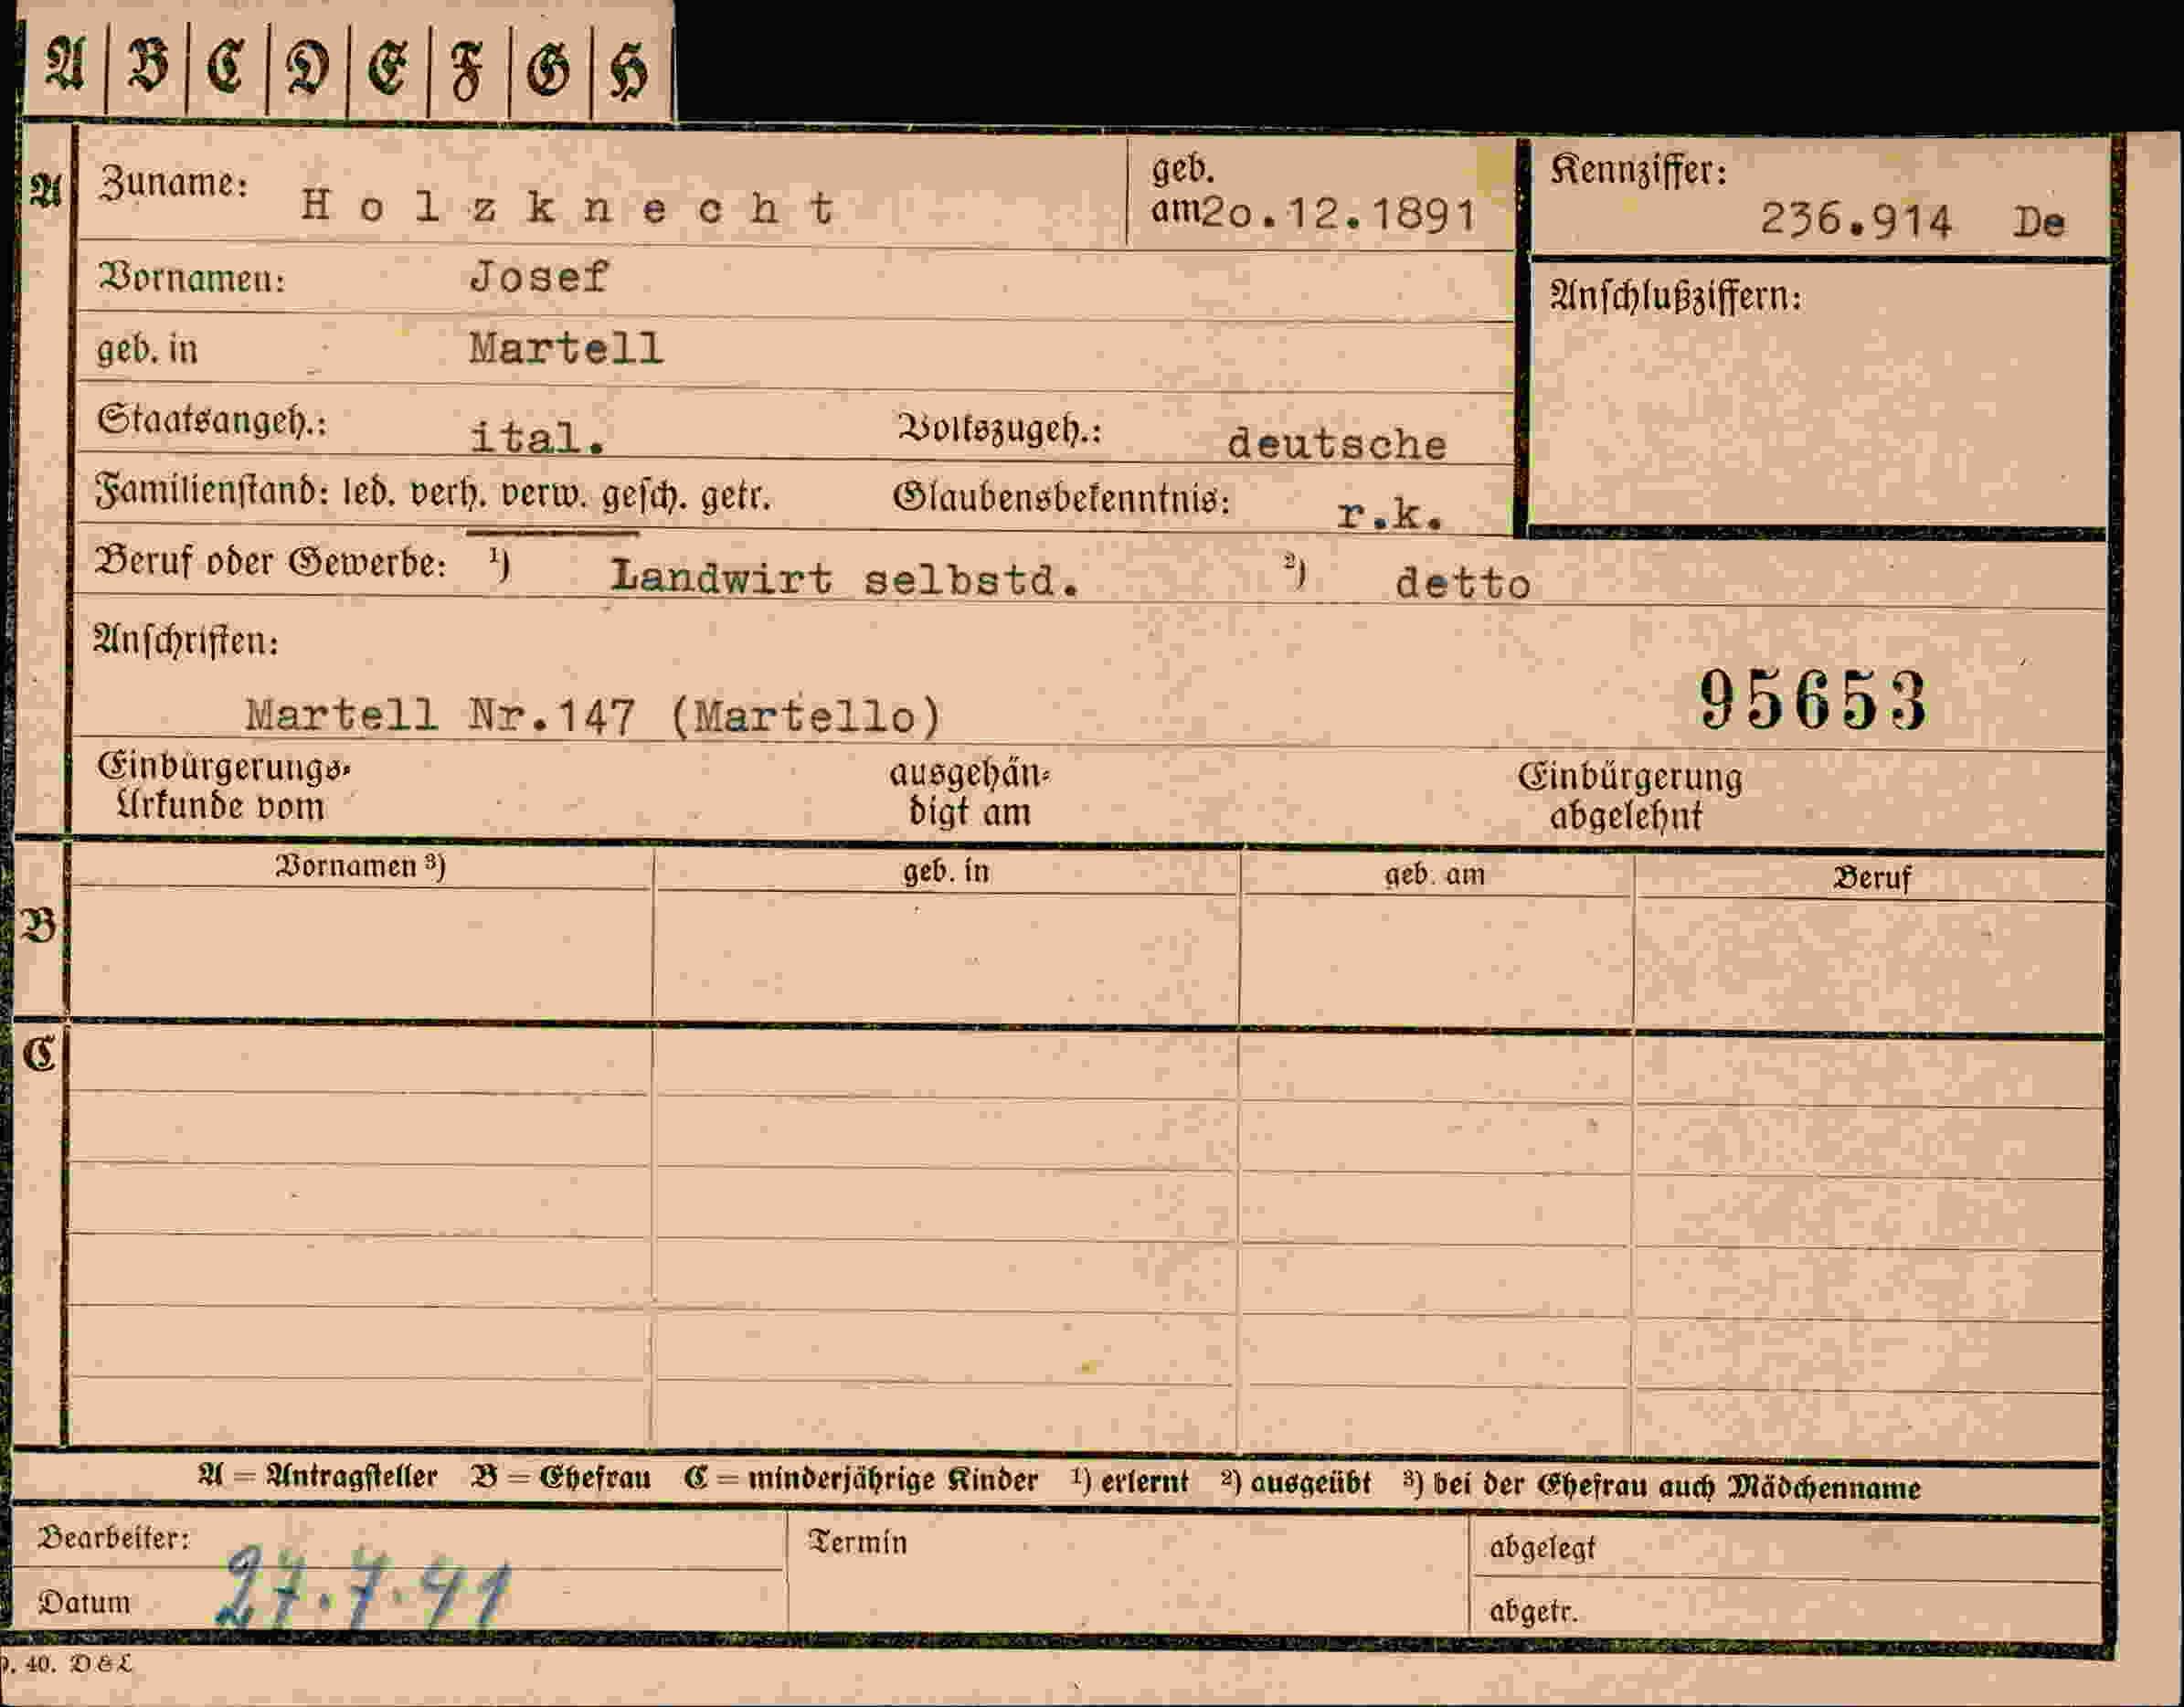 A B C D E F G H
A Zuname: Holzknecht geb. am 2o.12.1891 Kennziffer: 236.914 De
Vornamen: Josef Anschlußziffern:
geb. in Martell
Staatsangeh.: ital. Volkszugeh.: deutsche
Familienstand: led. verh. verw. gesch. getr. Glaubensbekenntnis: r.k.
Beruf oder Gewerbe: 1) Landwirt selbstd. 2) detto
Anschriften:
Martell Nr.147 (Martello) 95653
Einbürgerungs- ausgehän- Einbürgerung
Urkunde vom digt am abgelehnt
Vornamen 3) geb. in geb. am Beruf
B
C
A = Antragsteller B = Ehefrau C = minderjährige Kinder 1) erlernt 2) ausgeübt 3) bei der Ehefrau auch Mädchenname
Bearbeiter: Termin abgelegt
Datum 27.7.41 abgetr.
40. D & L